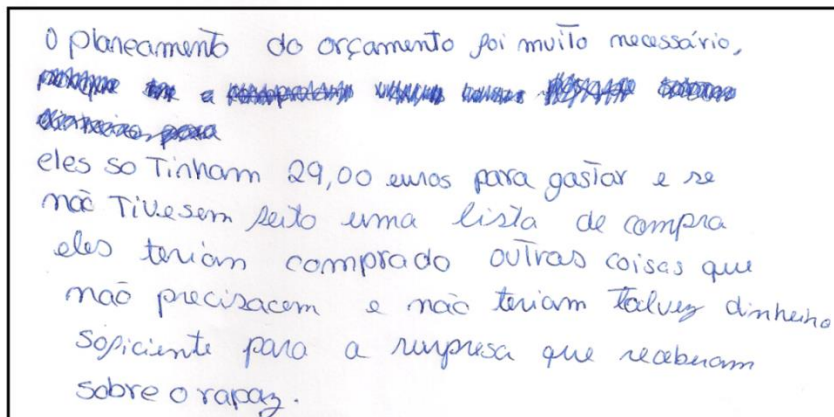 O planeamento do orçamento foi muito necessário,
eles so Tinham 29,00 euros para gastar e se
não Tivesem feito uma lista de compra
eles teriam comprado outras coisas que
não precisacem e não teriam talvez dinheiro
sopiciente para a surpresa que receberam
sobre o rapaz.